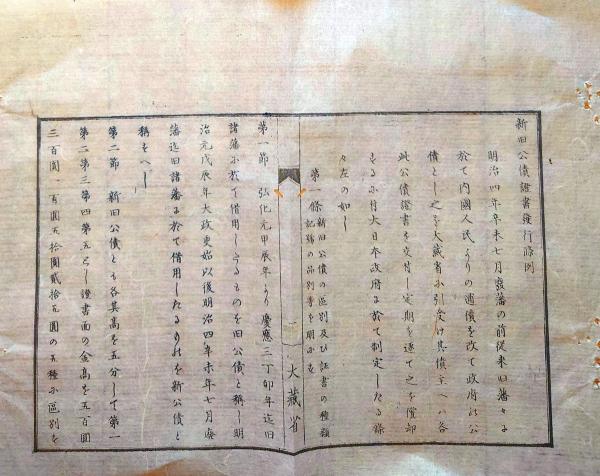 新旧公債證書發行條例
明治四年辛未七月廢藩の前従来旧藩々に
於て内國人民よりの逋債を改て政府の公
債とし之を大蔵省に引受け其債主へハ各
此公債證書を交付し定期を逐て之を償却
するに付大日本政府に於て制定したる條
々左の如し
第一條 新旧公債の区別及ひ証書の種類
記號の品別等を明にす
大藏省
第一節 弘化元甲辰年より慶應三丁卯年迄旧
諸藩に於て借用したるものを旧公債と称し明
治元戊辰年大政更始以後明治四年未年七月廃
藩迄旧諸藩に於て借用したるものを新公債と
称すへし
第二節 新旧公債とも各其高を五分して第一
第二第三第四第五とし證書面の金高を五百圓
三百圓一百圓五拾圓貳拾五圓の五種に区別を